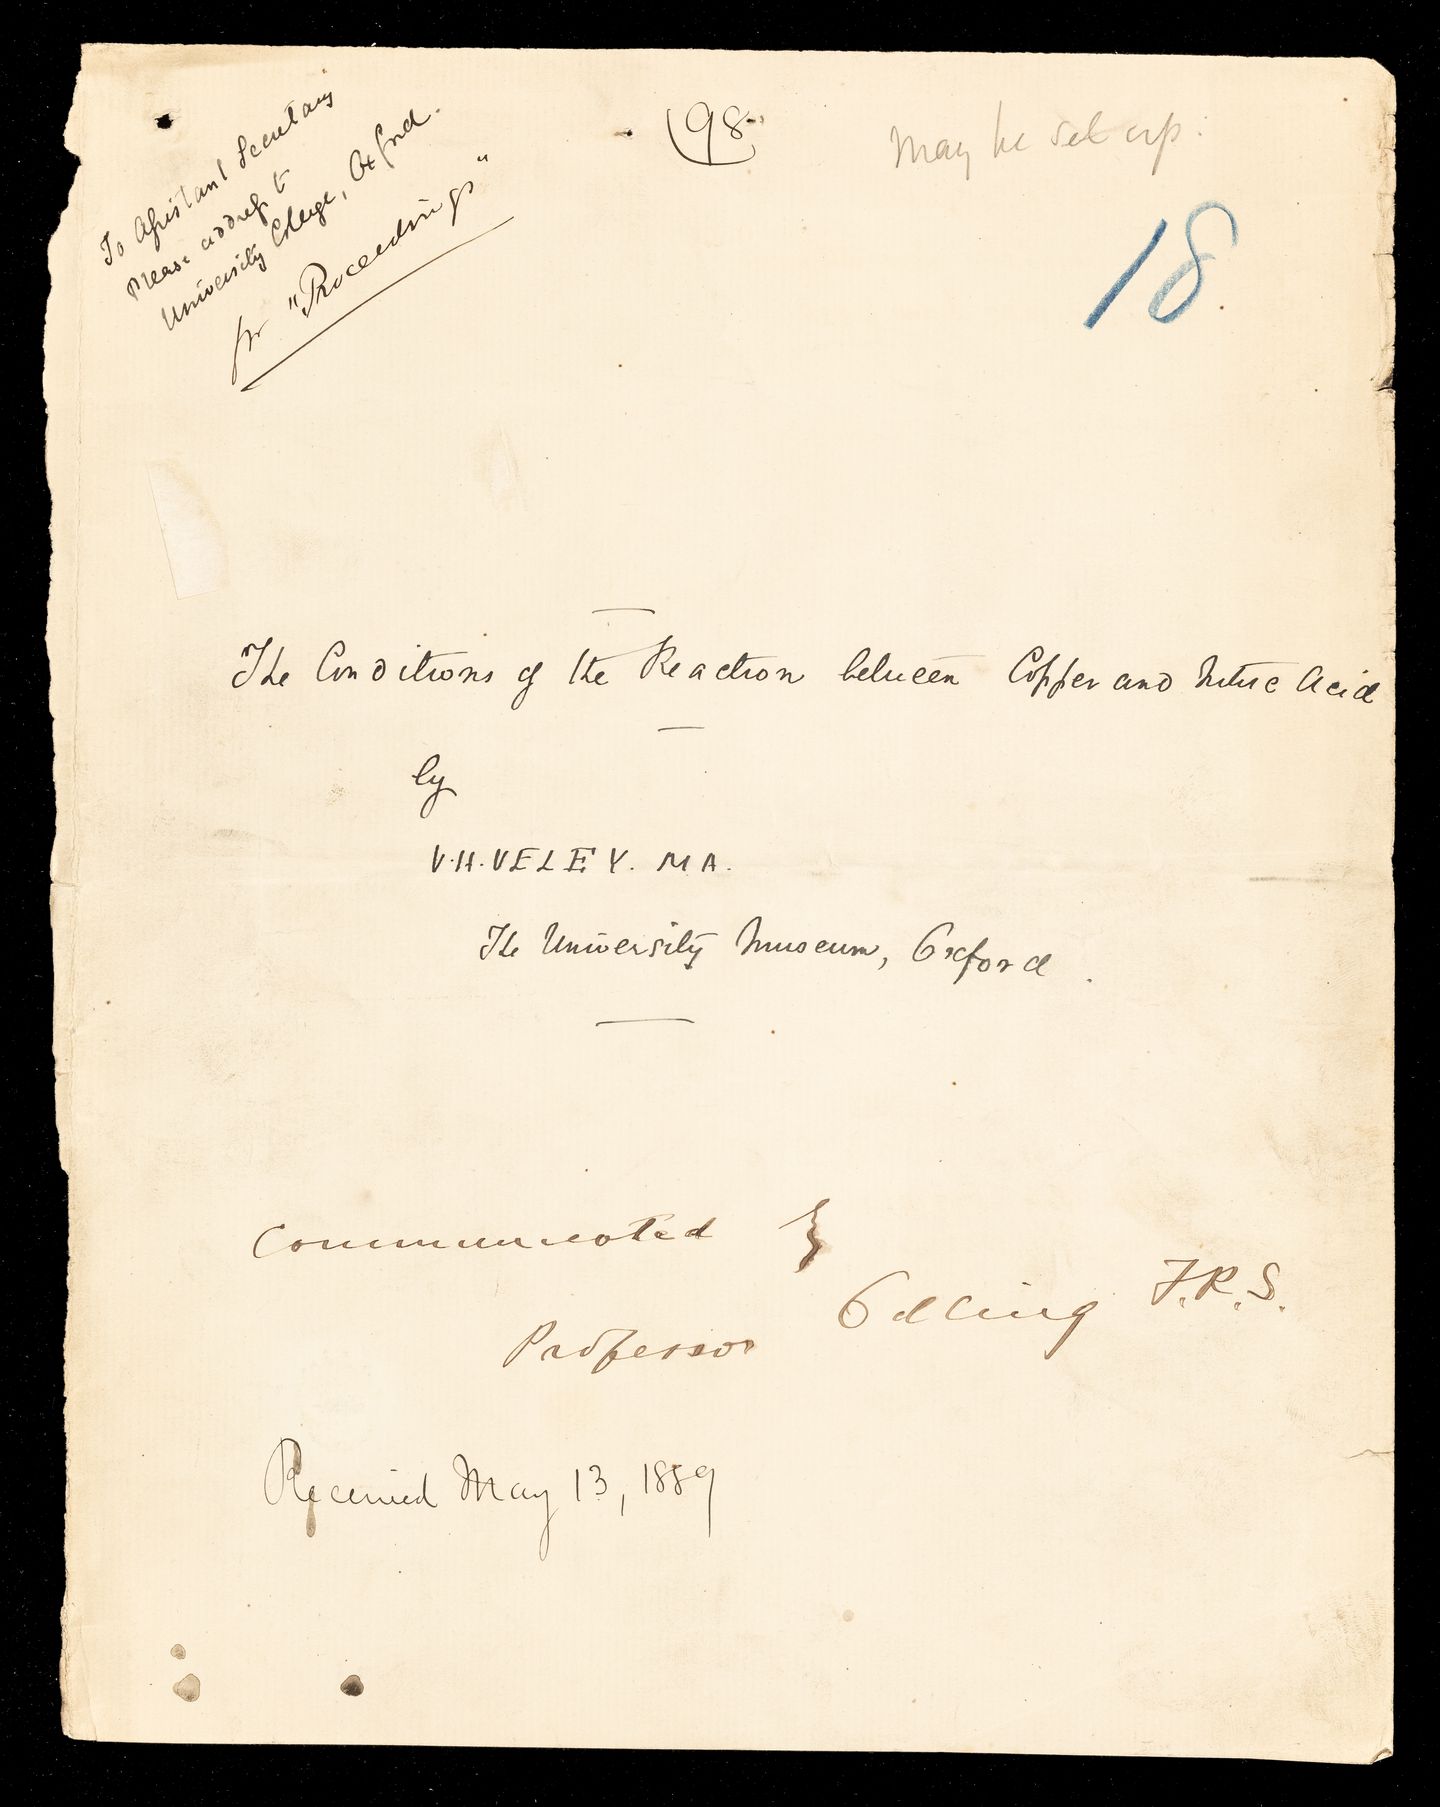 To Assistant Secretary
Please address to
University College, Oxford.
for "Proceedings"
(98
May be set up.
18
The Conditions of the Reaction between Copper and Nitric Acid
by
V. H. VELEY. MA.
The University Museum, Oxford.
Communicated by
Professor Odling F.R.S.
Received May 13, 1889